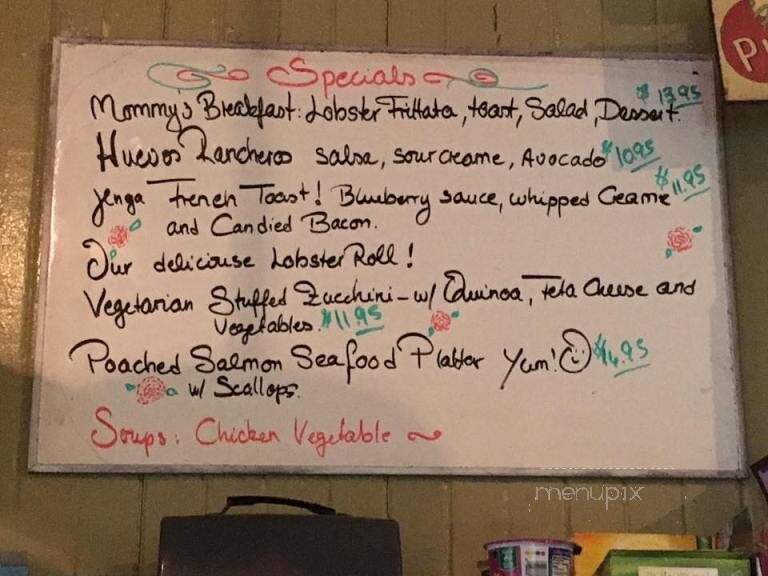 Specials
Mommy's Breakfast: Lobster Frittata, toast, Salad, Dessert. $13.95
Huevos Rancheros salsa, sour creame, Avocado $10.95
Jenga French Toast! Blueberry sauce, whipped Creame $11.95
and Candied Bacon.
Our deliciouse Lobster Roll!
Vegetarian Stuffed Zucchini - w/ Quinoa, Feta Cheese and
Vegetables. $11.95
Poached Salmon Seafood Platter Yum! $14.95
w/ Scallops.
Soups: Chicken Vegetable
menupix